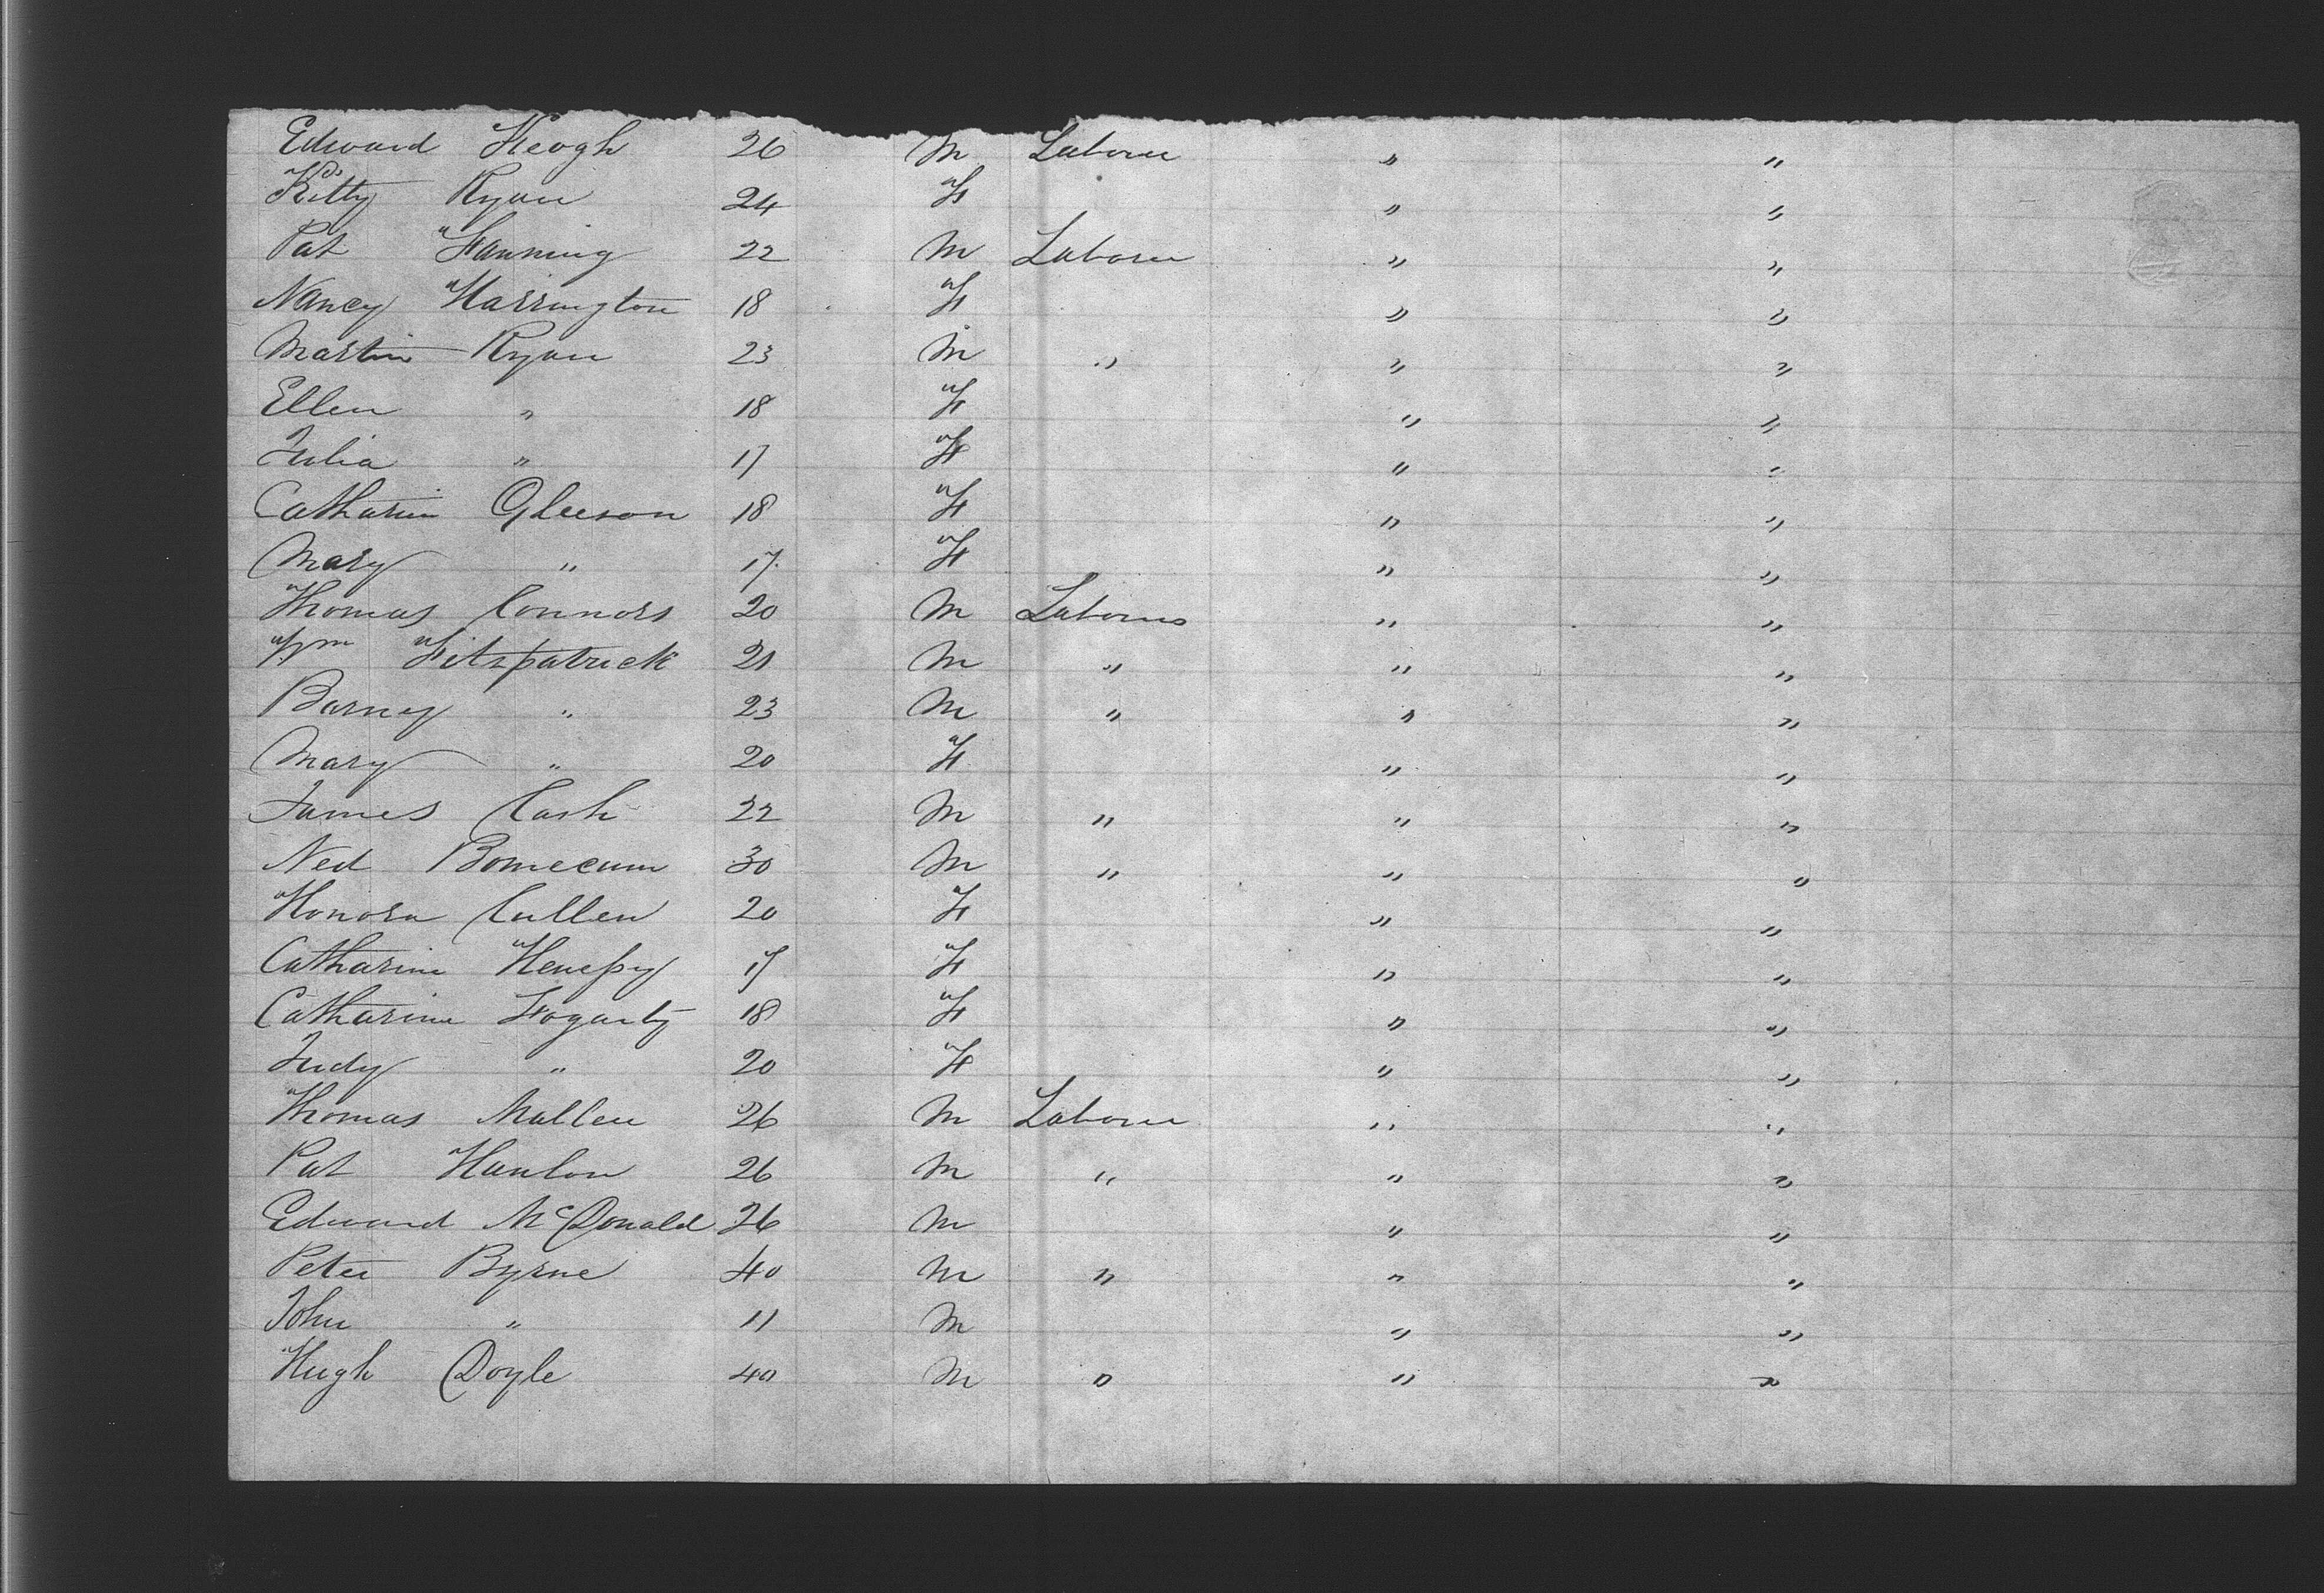 Edward Keogh 26 M Laborer " "
Kitty Ryan 24 F " "
Pat Fanning 22 M Laborer " "
Nancy Harrington 18 F " "
Martin Ryan 23 M " " "
Ellen " 18 F " "
Julia " 17 F " "
Catharin Gleeson 18 F " "
Mary " 17 F " "
Thomas Connors 20 M Laborer " "
Wm Fitzpatrick 21 M " " "
Barney " 23 M " " "
Mary " 20 F " "
James Cash 22 M " " "
Ned 30 M " " "
Honora Cullen 20 F " "
Catharine Henessy 17 F " "
Catharine Fogarty 18 F " "
Judy " 20 F " "
Thomas Mullen 26 M Laborer " "
Pat Hanlon 26 M " " "
Edward McDonald 26 M " "
Peter Byrne 40 M " " "
John " 11 M " "
Hugh Doyle 40 M " " "